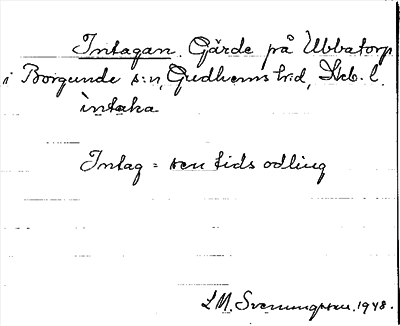 Intagan. Gärde på Ubbatorp
i Borgunde s:n, Gudhems hd, Skb. l.
intaka
Intag = sen tids odling
L M. Svenungsson. 1948.